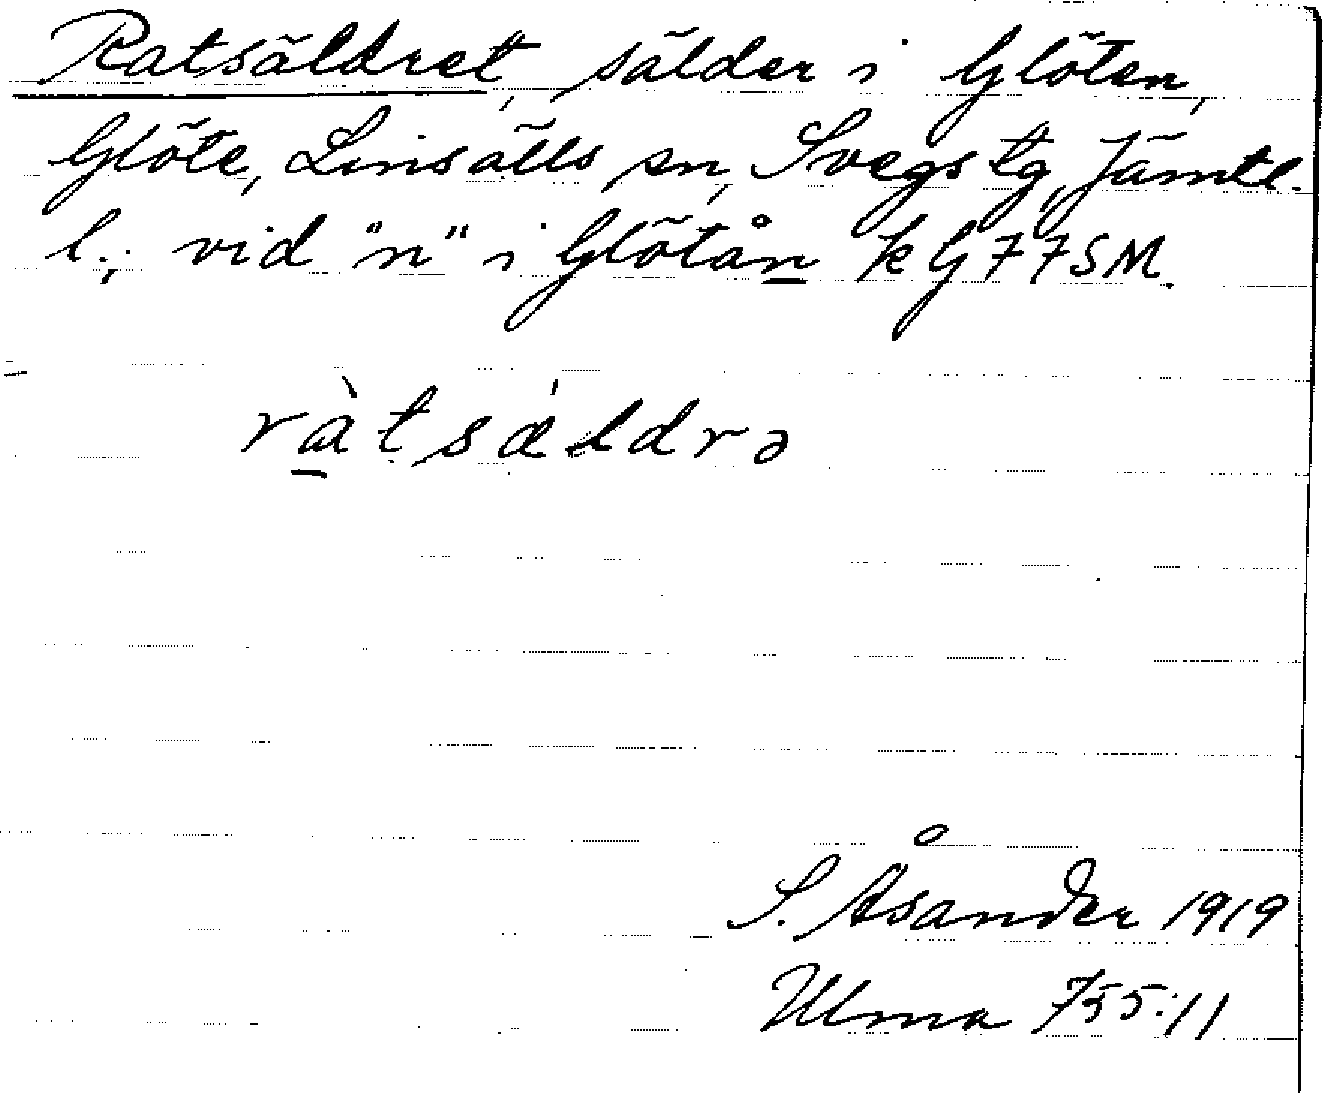 Ratsäldret, sälder i Glöten,
Glöte, Linsälls sn, Svegs tg, Jämtl.
l.; vid "n" i Glötån kG77SM.
ràtsǽldrə
S. Åsander 1919
Ulma 755:11